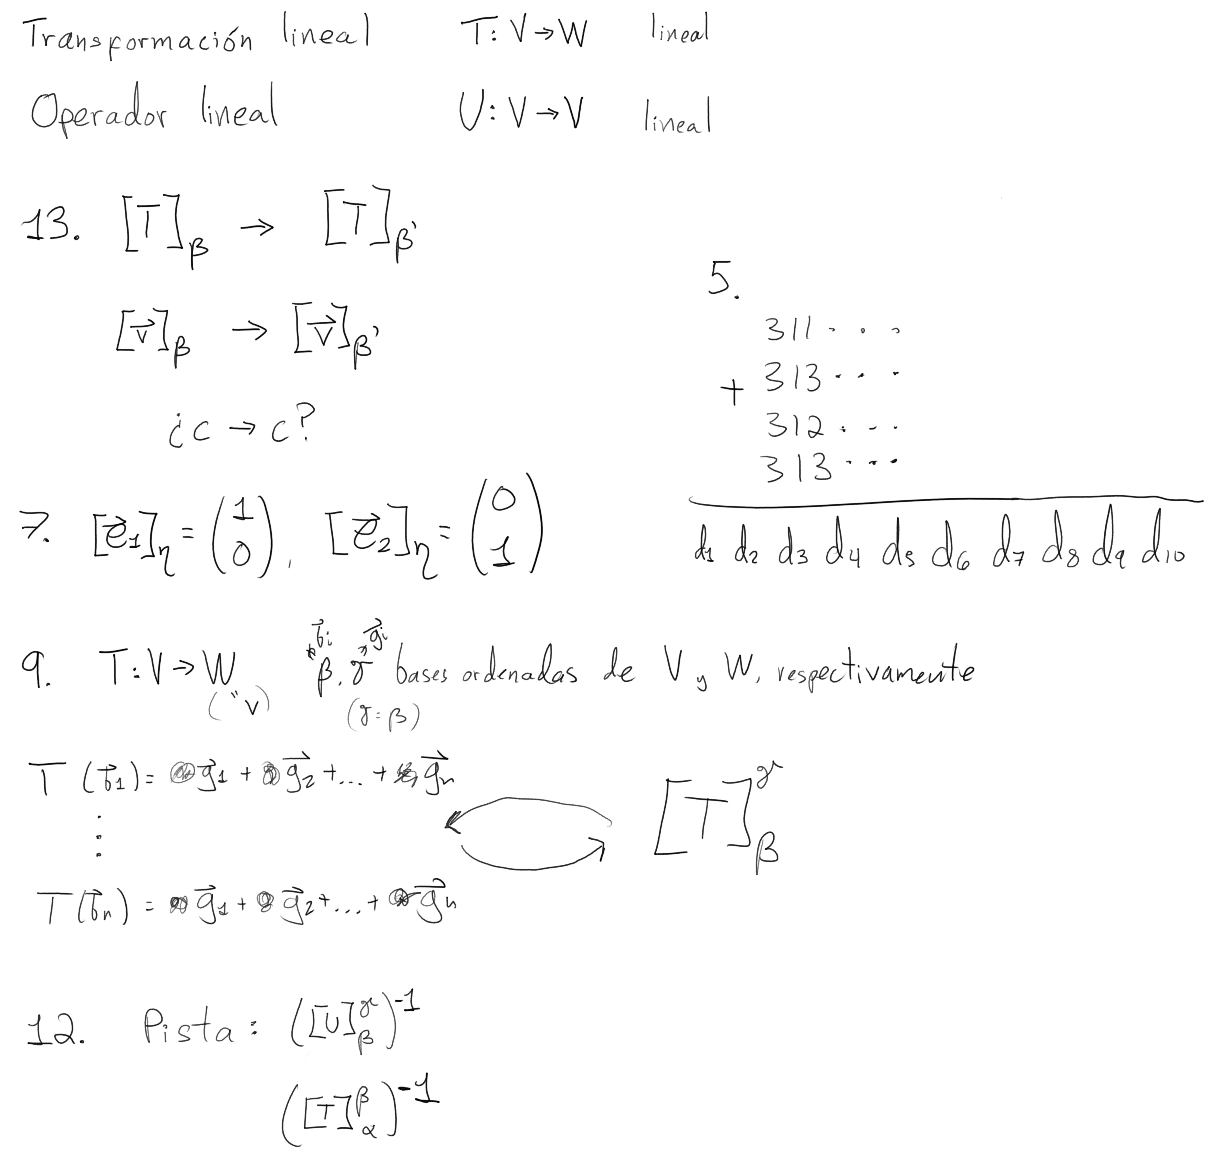 Transformación lineal T: V → W lineal
Operador lineal U: V → V lineal
13. [T]_β → [T]_β'
[v⃗]_β → [v⃗]_β'
¿c → c?
5.
311 . . .
+ 313 . . .
312 . . .
313 . . .
d1 d2 d3 d4 d5 d6 d7 d8 d9 d10
7. [e⃗1]_η = (1 0), [e⃗2]_η = (0 1)
b⃗i g⃗i
9. T: V → W β, γ bases ordenadas de V y W, respectivamente
("V) (γ = β)
T(b⃗1) = g⃗1 + g⃗2 + ... + g⃗n
⋮
[T]_β^γ
T(b⃗n) = g⃗1 + g⃗2 + ... + g⃗n
12. Pista: ([U]_β^γ)^-1
([T]_α^β)^-1